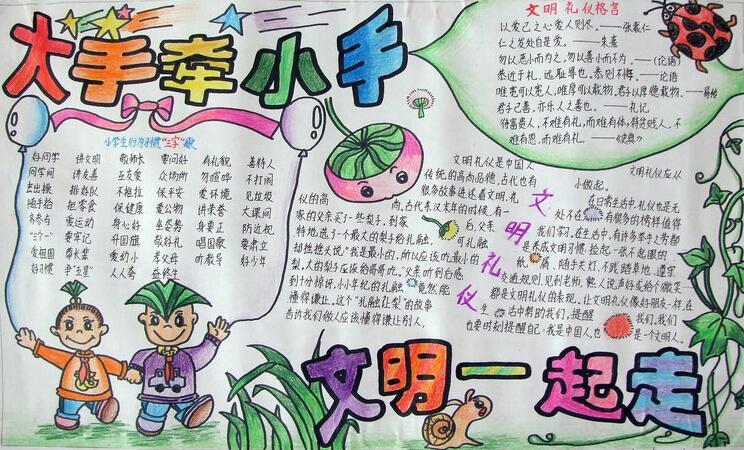 大手牵小手
文明礼仪格言
以爱己之心爱人则尽。——张载
仁之发处自是爱。——朱熹
勿以恶小而为之，勿以善小而不为。
恭近于礼，远耻辱也。恭则不侮。——论语
唯宽可以容人，唯厚可以载物。君子以厚德载物。——易传
君子己善，亦乐人之善也。——礼记
待富贵人，不难有礼，而难有体；待贫贱人，不
难有恩，而难有礼。
小学生行为习惯“三字”歌
好同学 讲文明 敬师长 要问好 有礼貌 善待人
同学间 讲友善 互友爱 众场所 勿喧哗 不打闹
去出操 排好队 不推拉 保平安 爱环境 见垃圾
随手拾 把零食 保健康 爱公物 讲荣誉 大课间
多参与 爱运动 身心好 坐姿势 身要正 防近视
“三个一” 要牢记 升国旗 敬好礼 唱国歌 要肃立
爱祖国 尊长辈 爱幼小 孝父母 听教导 好少年
好习惯 争“五星” 人人夸 益终生
文明礼仪是中国人
传统的高尚品德，古代也有
很多故事讲述着文明、礼
仪的高尚，古代东汉末年的时候，有一
家的父亲买了一些梨子，到家 后，父亲
特地选了一个最大的梨子给孔融， 可孔融
却摇摇头说：“我是最小的，所以应该吃最小的
梨，大的梨子应该给哥哥吃。”父亲听到后感
到十分惊讶，小小年纪的孔融 竟然能
懂得谦让，这个“孔融让梨”的故事
告诉我们做人应该懂得谦让别人，
文明礼仪
文明礼仪应从
小做起。
在日常生活中，礼仪也是无
处不在 有很多的榜样值得
我们学习。在生活中，有许多举手之劳都
是养成文明习惯：捡起一张不起眼的
纸屑、随手关灯、不践踏草地、遵守
交通规则、见到老师、熟人说声好或给个微笑…
都是文明礼仪的表现。让文明礼仪像好朋友一样，在
生活中帮我们，提醒 我们。我们
也要时刻提醒自己：我是中国人也 是一个文明人。
文明一起走